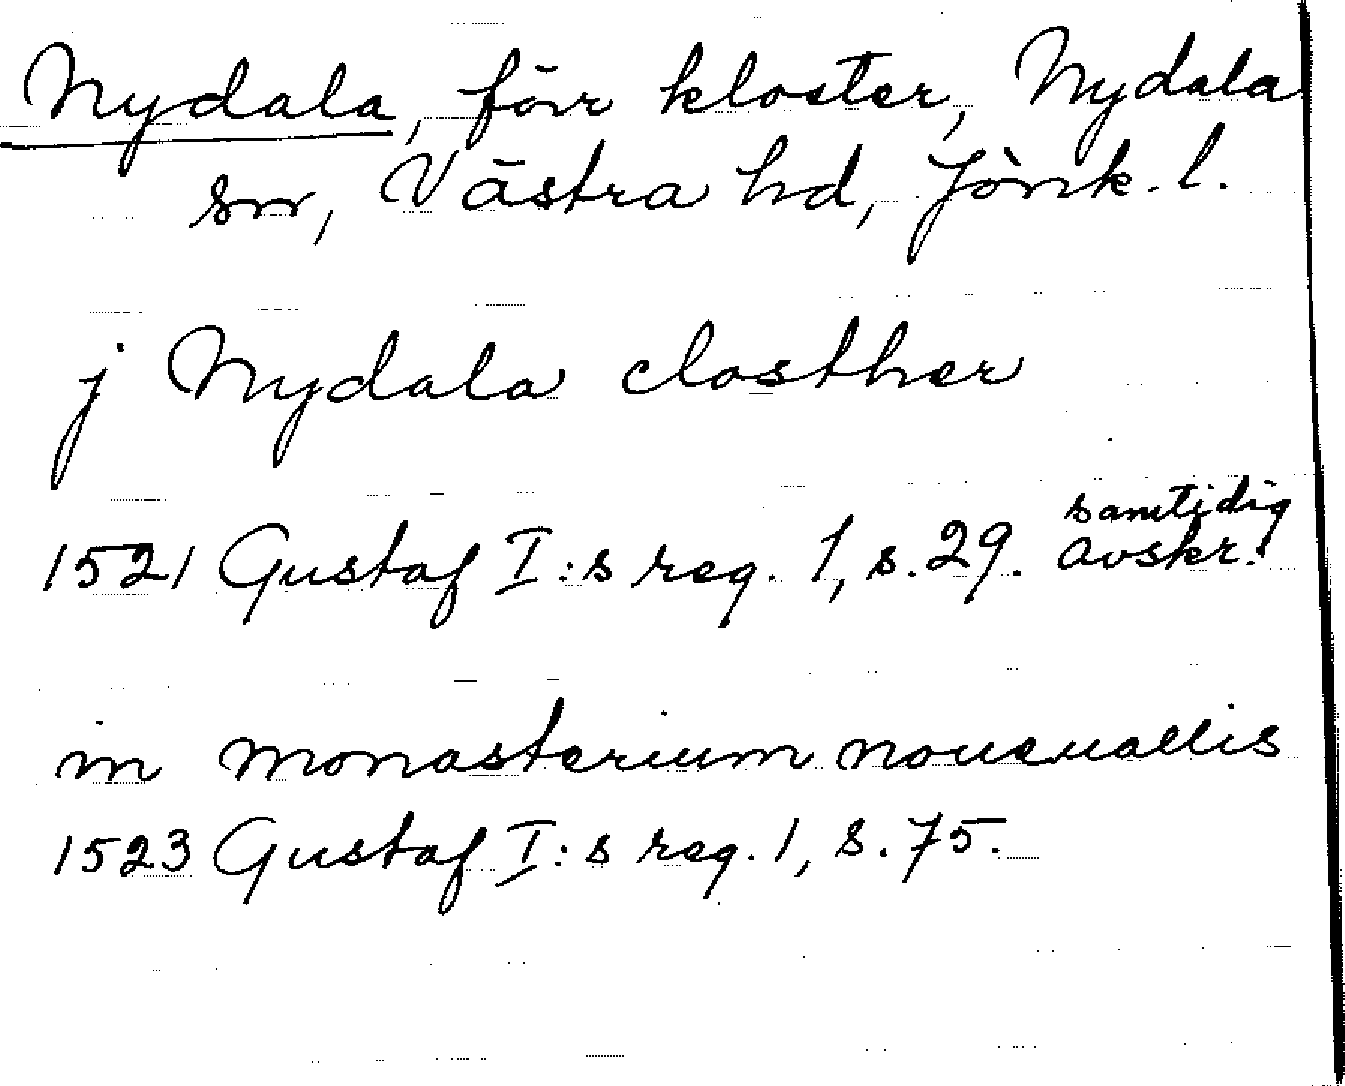 Nydala, förr kloster, Nydala
sn, Västra hd, Jönk. l.
j Nydala closther
1521 Gustaf I:s reg. 1, s. 29. samtidig avskr.
in monasterium noueuallis
1523 Gustaf I:s reg. 1, s. 75.